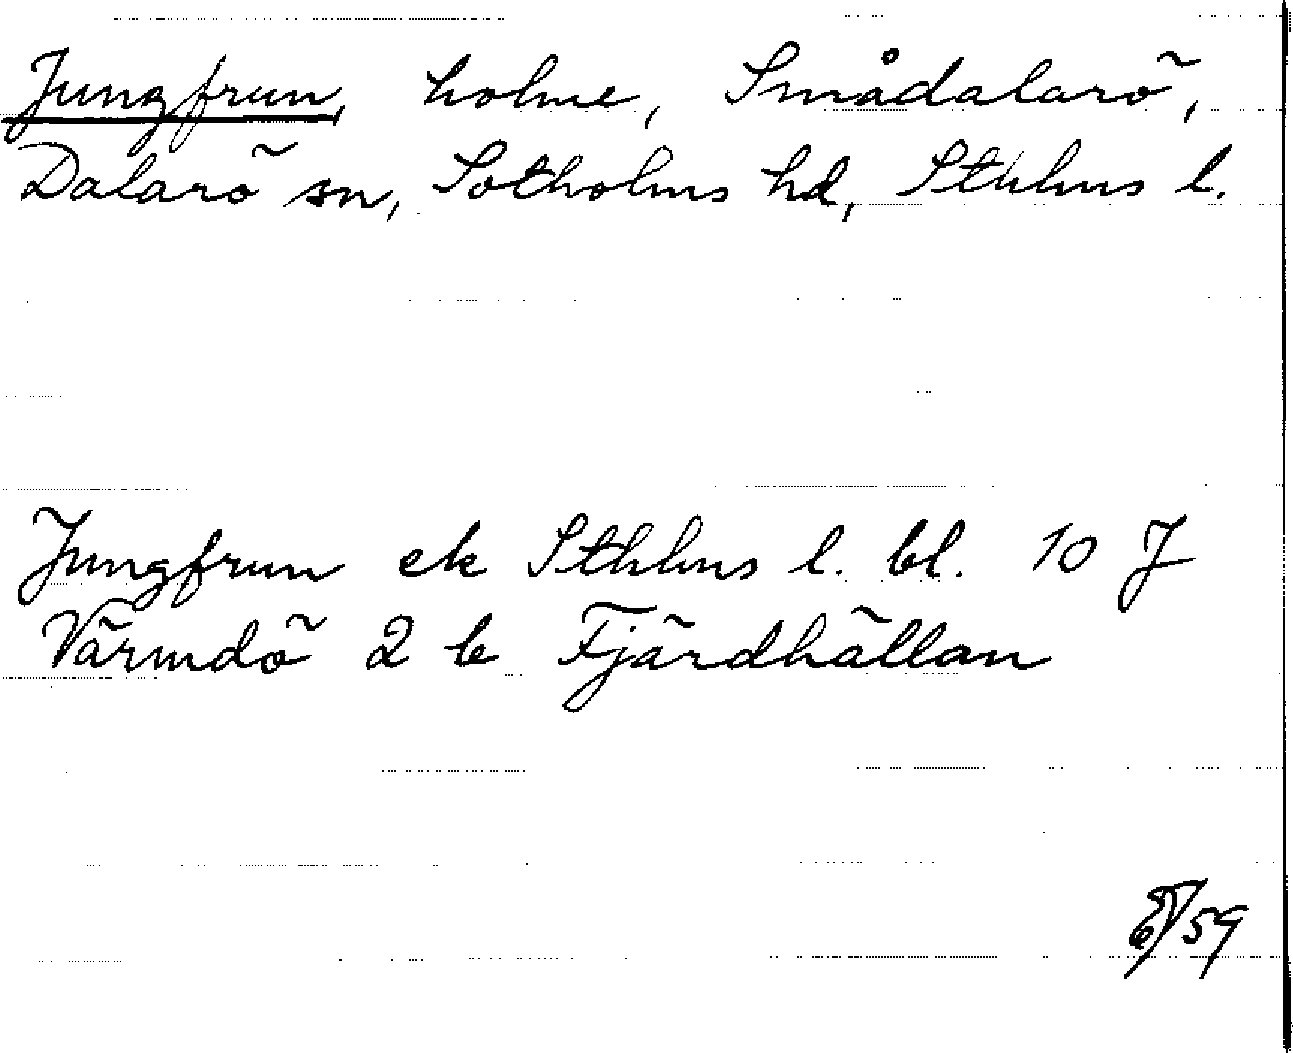 Jungfrun, holme, Smådalarö,
Dalarö sn, Sotholms hd, Sthlms l.
Jungfrun ek Sthlms l. bl. 10 J
Värmdö 2 b Fjärdhällan
59